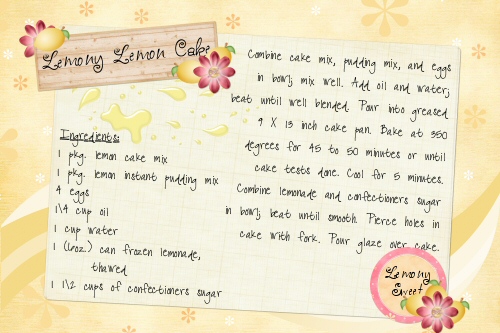 Lemony Lemon Cake
Ingredients:
1 pkg. lemon cake mix
1 pkg. lemon instant pudding mix
4 eggs
1\4 cup oil
1 cup water
1 (6oz.) can frozen lemonade,
thawed
1 1\2 cups of confectioners sugar
Combine cake mix, pudding mix, and eggs
in bowl; mix well. Add oil and water;
beat until well blended. Pour into greased
9 X 13 inch cake pan. Bake at 350
degrees for 45 to 50 minutes or until
cake tests done. Cool for 5 minutes.
Combine lemonade and confectioners sugar
in bowl; beat until smooth. Pierce holes in
cake with fork. Pour glaze over cake.
Lemony
Sweet